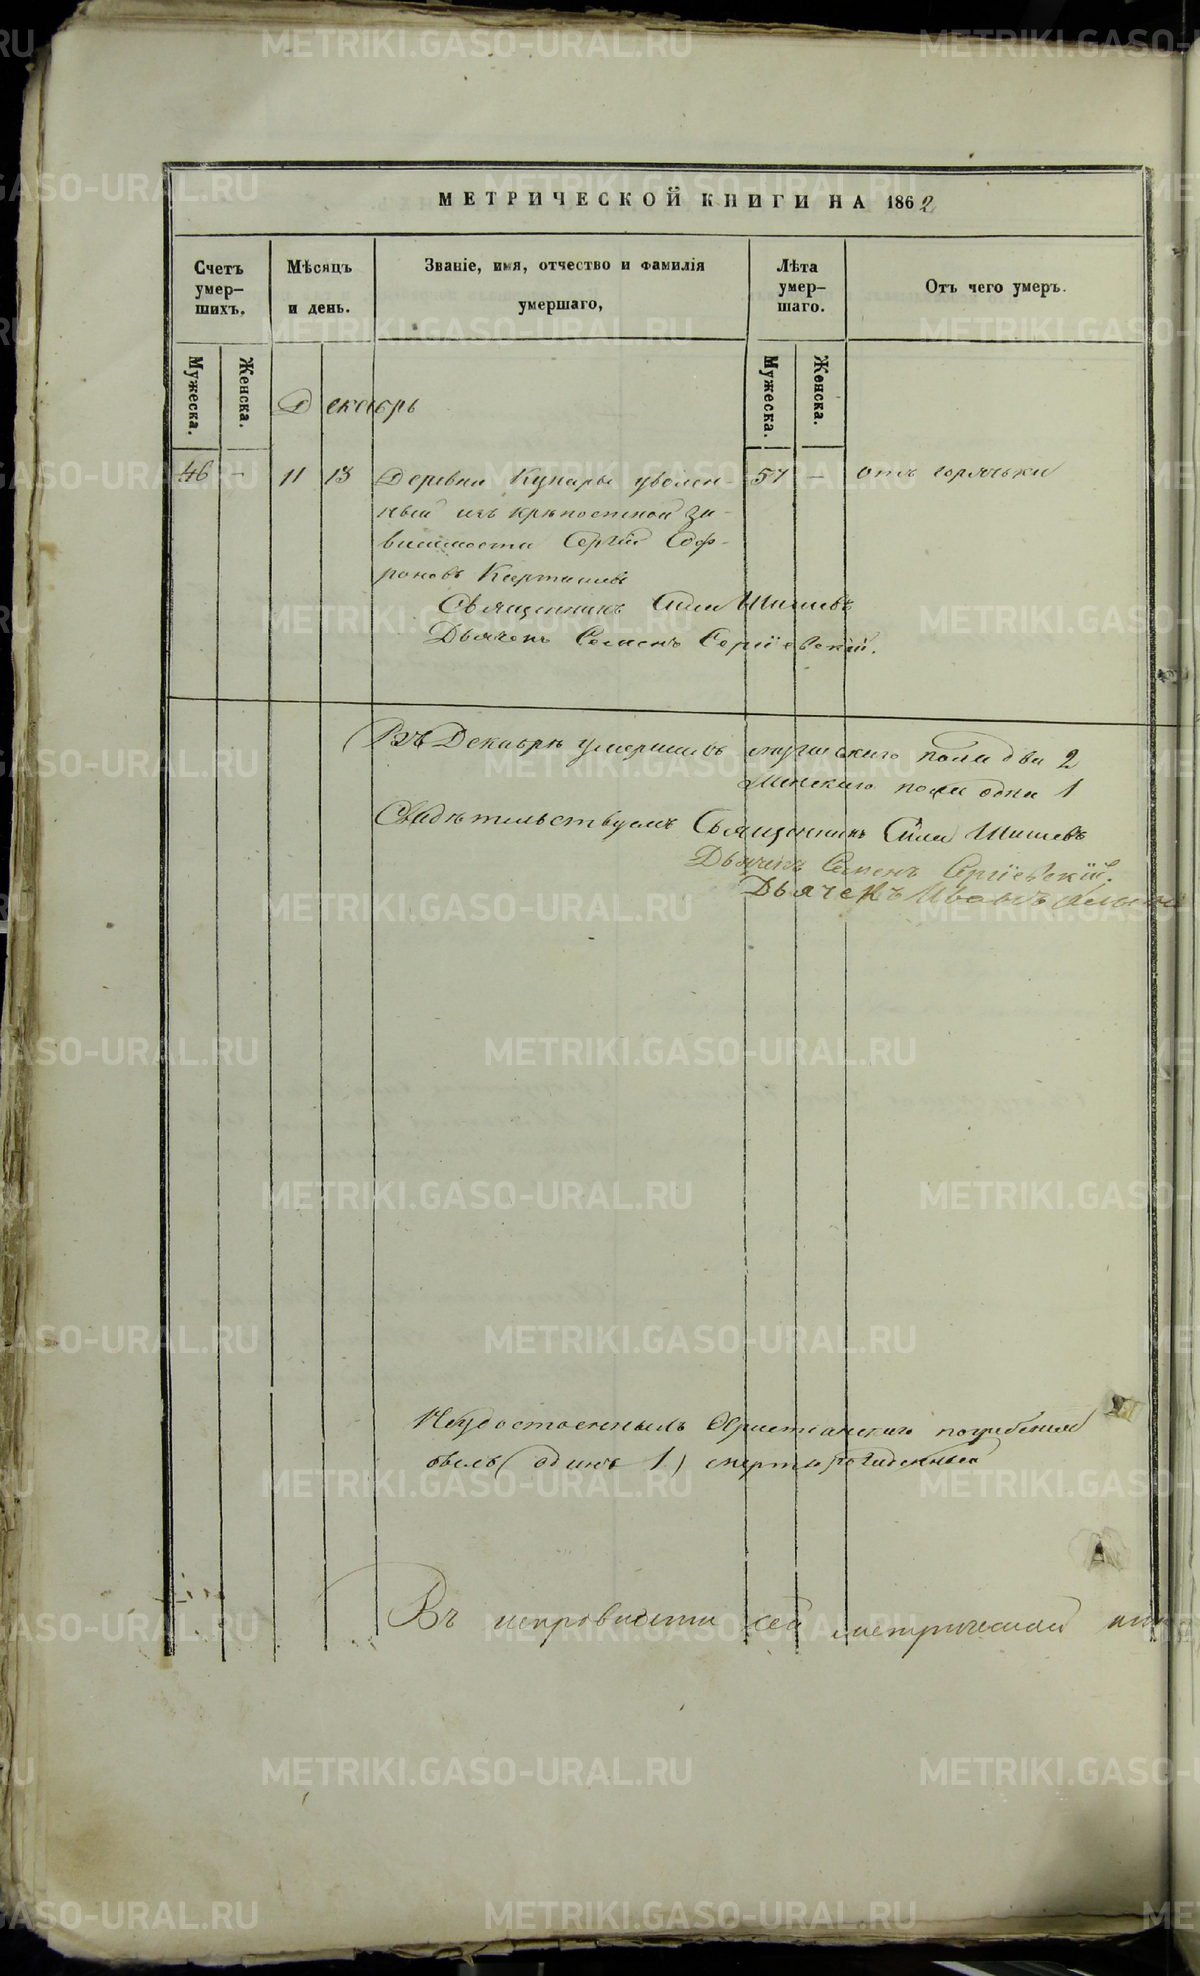 МЕТРИЧЕСКОЙ КНИГИ НА 1862
Счетъ умер-шихъ.
Мѣсяцъ и день.
Званіе, имя, отчество и фамилія умершаго,
Лѣта умер-шаго.
Отъ чего умеръ.
Мужеска.
Женска.
Мужеска.
Женска.
Декабрь
46 - 11 13 Деревни Кунары уволен- 57 - отъ горячьки
ный изъ крѣпостной за-
висимости Сергій Соф-
роновъ Карташевъ
Священникъ Сила Шишевъ
Дьячекъ Семенъ Сергіевскій.
Въ Декабрѣ умершихъ мужескаго пола два 2
Женскаго пола одна 1
Свидѣтельствуемъ Священникъ Сила Шишевъ
Дьячекъ Семенъ Сергіевскій.
Дьячекъ Иванъ
Неудостоенныхъ Христіанскаго погребенія
былъ (одинъ 1) смерть
Въ исправности сей метрической
METRIKI.GASO-URAL.RU